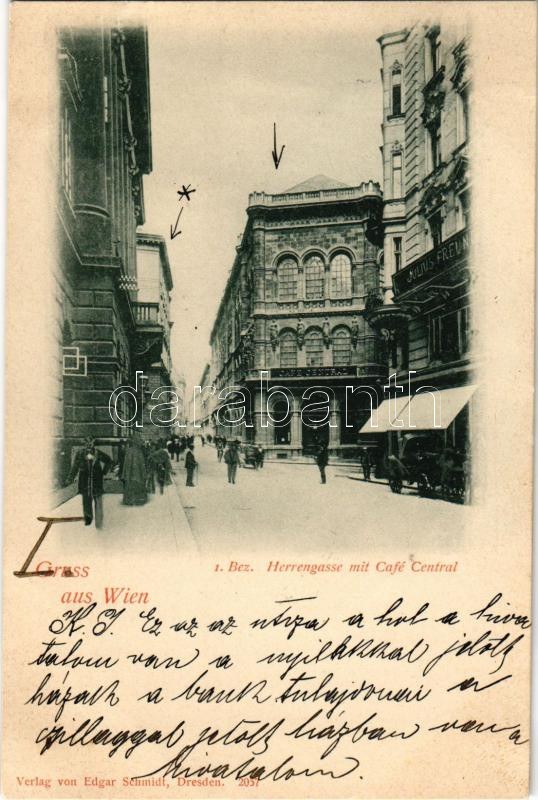 JULIUS FREUN
CAFE CENTRAL
darabanth
Gruss
aus Wien
1. Bez. Herrengasse mit Café Central
K. J. Ez az az utcza a hol a hiva
talom van a nyilakkal jelölt
házak a bank tulajdonai a
csillaggal jelölt házban van a
hivatalom.
Verlag von Edgar Schmidt, Dresden. 2057